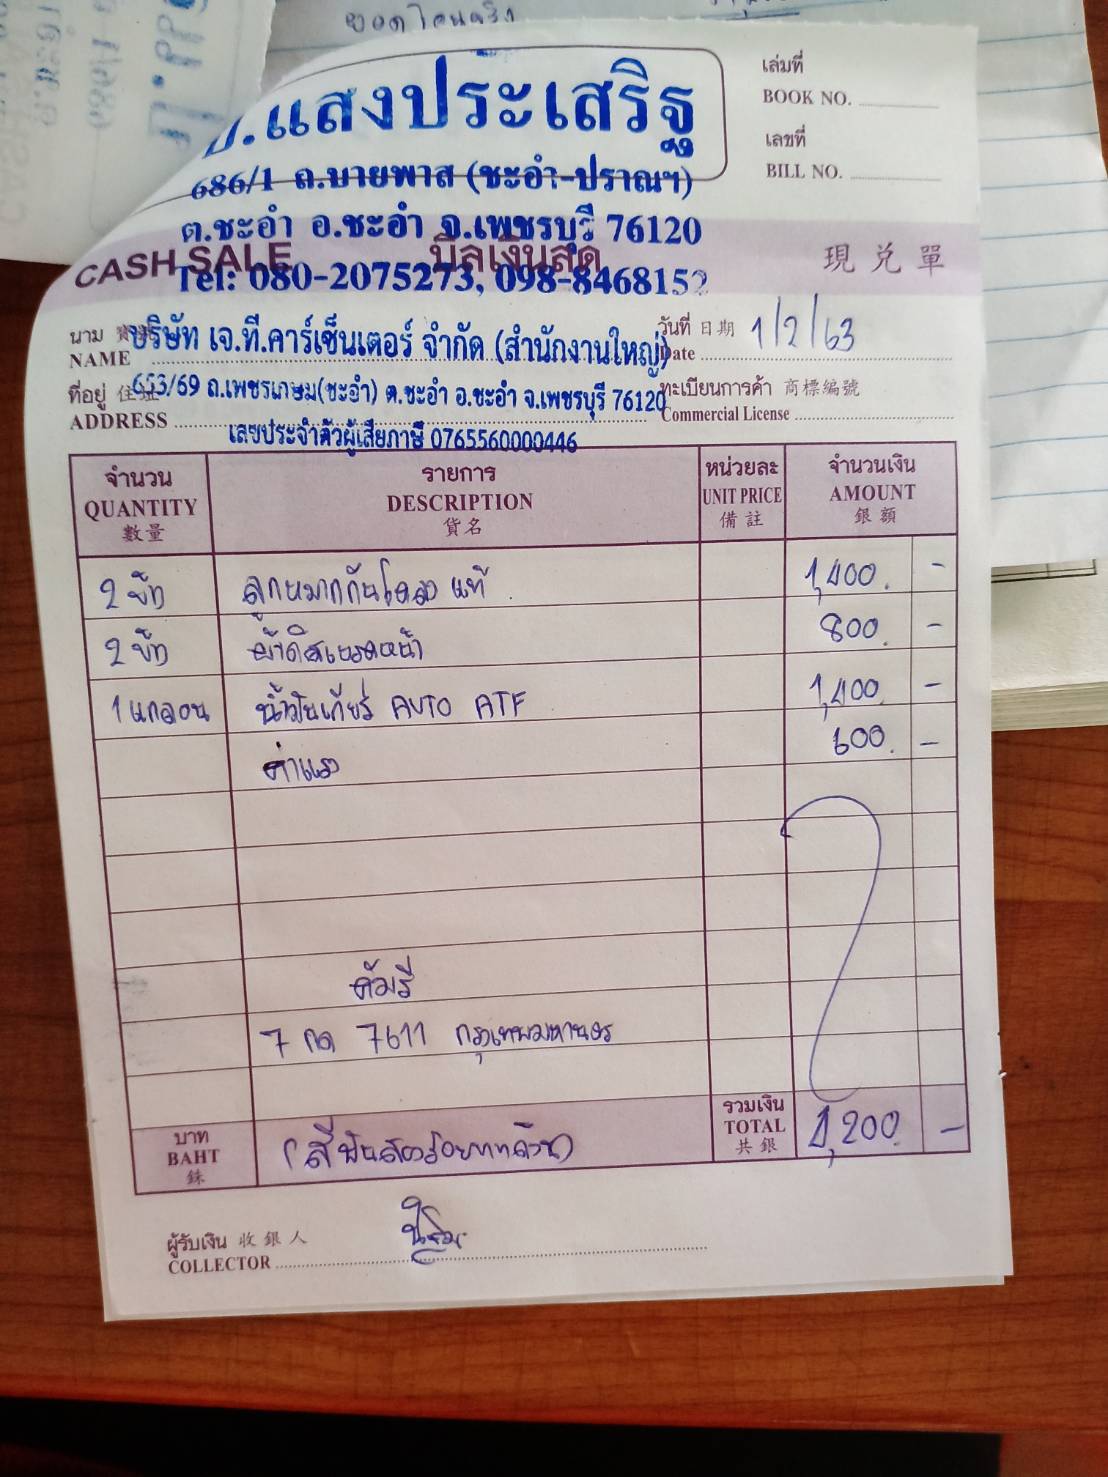 ยอดโอนจริง
.แสงประเสริฐ
686/1 ถ.บายพาส (ชะอำ-ปราณฯ)
ต.ชะอำ อ.ชะอำ จ.เพชรบุรี 76120
Tel: 080-2075273, 098-8468152
เล่มที่
BOOK NO.
เลขที่
BILL NO.
CASH SALE บิลเงินสด 現兌單
นาม บริษัท เจ.ที.คาร์เซ็นเตอร์ จำกัด (สำนักงานใหญ่) วันที่ 日期 1/2/63
NAME Date
ที่อยู่ 653/69 ถ.เพชรเกษม(ชะอำ) ต.ชะอำ อ.ชะอำ จ.เพชรบุรี 76120 ทะเบียนการค้า 商標編號
ADDRESS Commercial License
เลขประจำตัวผู้เสียภาษี 0765560000446
จำนวน รายการ หน่วยละ จำนวนเงิน
QUANTITY DESCRIPTION UNIT PRICE AMOUNT
數量 貨名 備註 銀額
2 ข้าง ลูกหมากกันโคลง แท้ 1,400. -
2 ข้าง ผ้าดิสเบรคหน้า 800. -
1 แกลอน น้ำมันเกียร์ AUTO ATF 1,400. -
ค่าแรง 600. -
คัมรี่
7 กด 7611 กรุงเทพมหานคร
บาท (สี่พันสองร้อยบาทถ้วน) รวมเงิน 4,200. -
BAHT TOTAL
銖 共銀
ผู้รับเงิน 收銀人
COLLECTOR